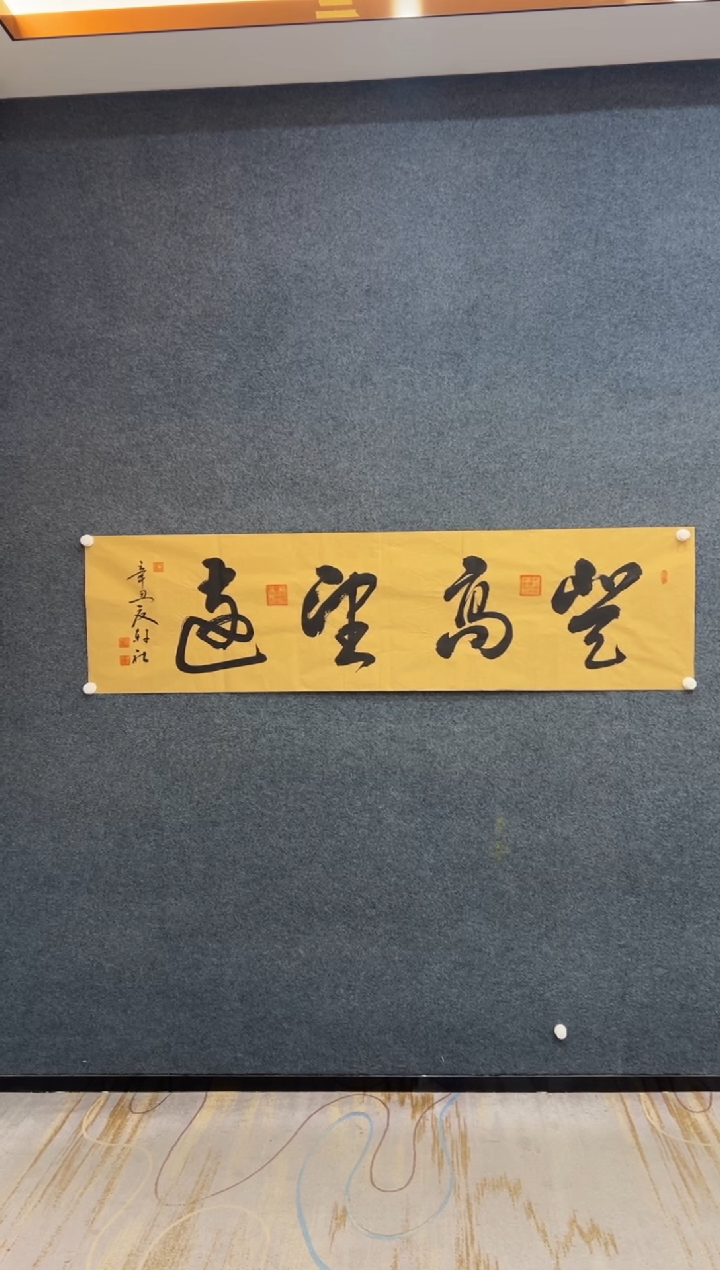 登高望远
辛丑